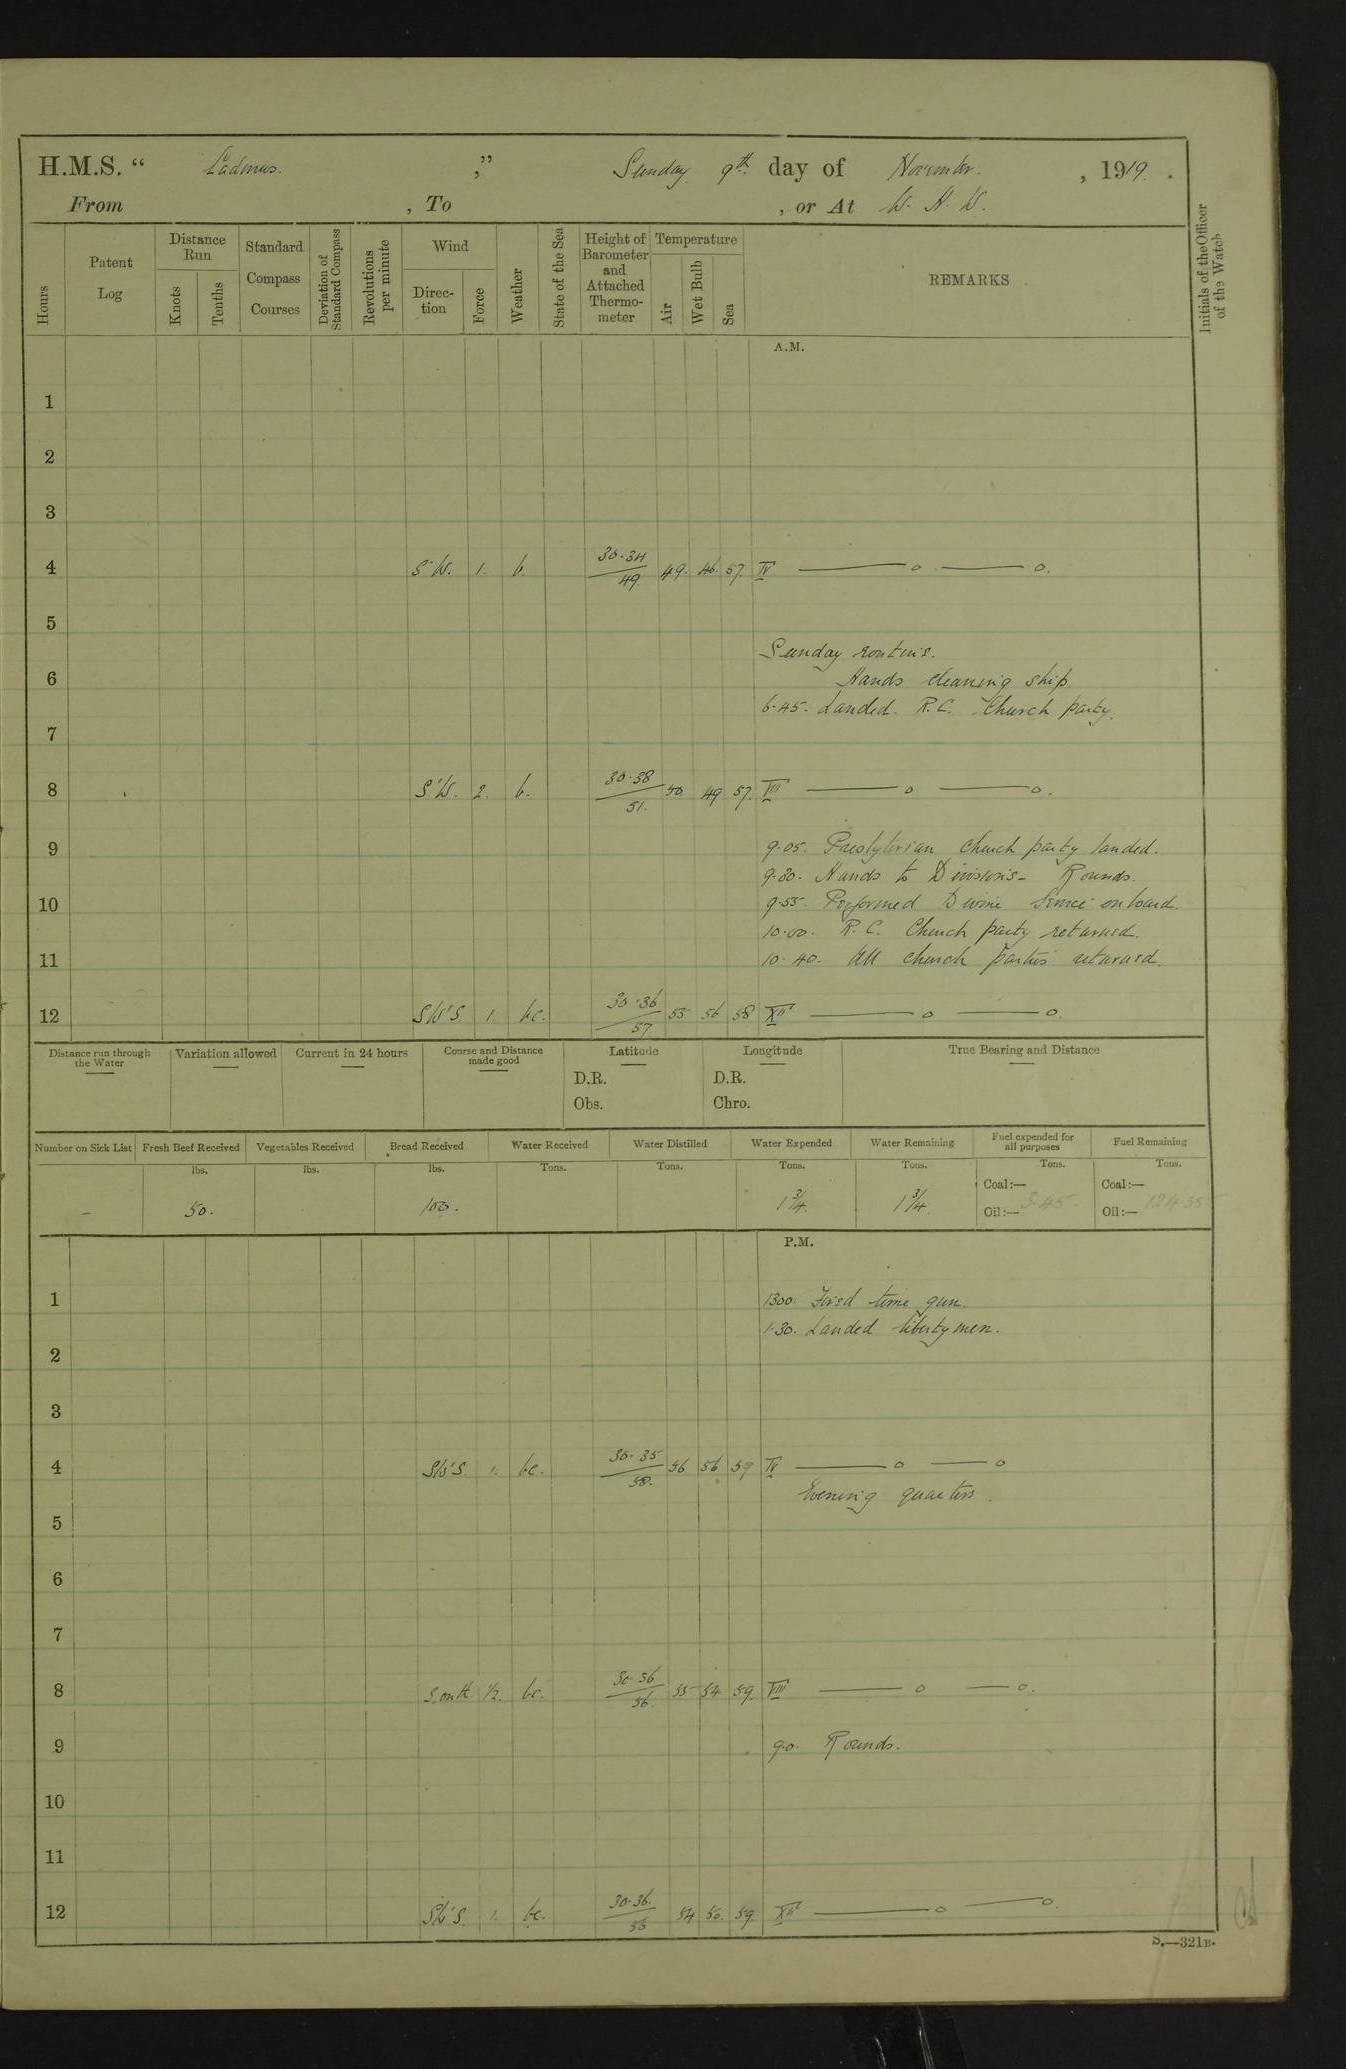 H.M.S. “ Cadmus. ,” Sunday 9th day of November. , 1919.
From , To , or At W. H. W.
Hours Patent Log Distance Run Knots Tenths Standard Compass Courses Deviation of Standard Compass Revolutions per minute Wind Direc-tion Force Weather State of the Sea Height of Barometer and Attached Thermo-meter Temperature Air Wet Bulb Sea REMARKS Initials of the Officer of the Watch
A.M.
1
2
3
4 S'W. 1. b. 30.34/49. 49. 46. 57. IV —o —o.
5
Sunday routine.
6 Hands cleaning ship.
6.45. Landed. R.C. Church party.
7
8 S'W. 2. b. 30.38/51. 50. 49 57. VIII —o —o.
9 9.05. Presbyterian church party landed.
9.30. Hands to Divisions - Rounds.
10 9.55. Performed Divine Service on board.
10.00. R.C. Church party returned.
11 10.40. All church parties returned.
12 SW'S. 1. bc. 30.36/57 55 56 58 XII —o —o.
Distance run through the Water Variation allowed Current in 24 hours Course and Distance made good Latitude Longitude True Bearing and Distance
D.R. D.R.
Obs. Chro.
Number on Sick List Fresh Beef Received Vegetables Received Bread Received Water Received Water Distilled Water Expended Water Remaining Fuel expended for all purposes Fuel Remaining
lbs. lbs. lbs. Tons. Tons. Tons. Tons. Tons. Tons.
Coal:— Coal:—
- 50. 100. 1 3/4. 1 3/4. Oil:— Oil:—
P.M.
1 1300 Fired time gun.
1.30. Landed liberty men.
2
3
4 SW'S. 1. bc. 30.35/58. 56 56 59 IV —o —o
Evening quarters.
5
6
7
8 South 1/2. bc. 30.36/56. 55 54 59. VIII —o —o.
9 9.0. Rounds.
10
11
12 SW'S. 1. bc. 30.36./56 54 50. 59. XII —o —o.
S.—321B.